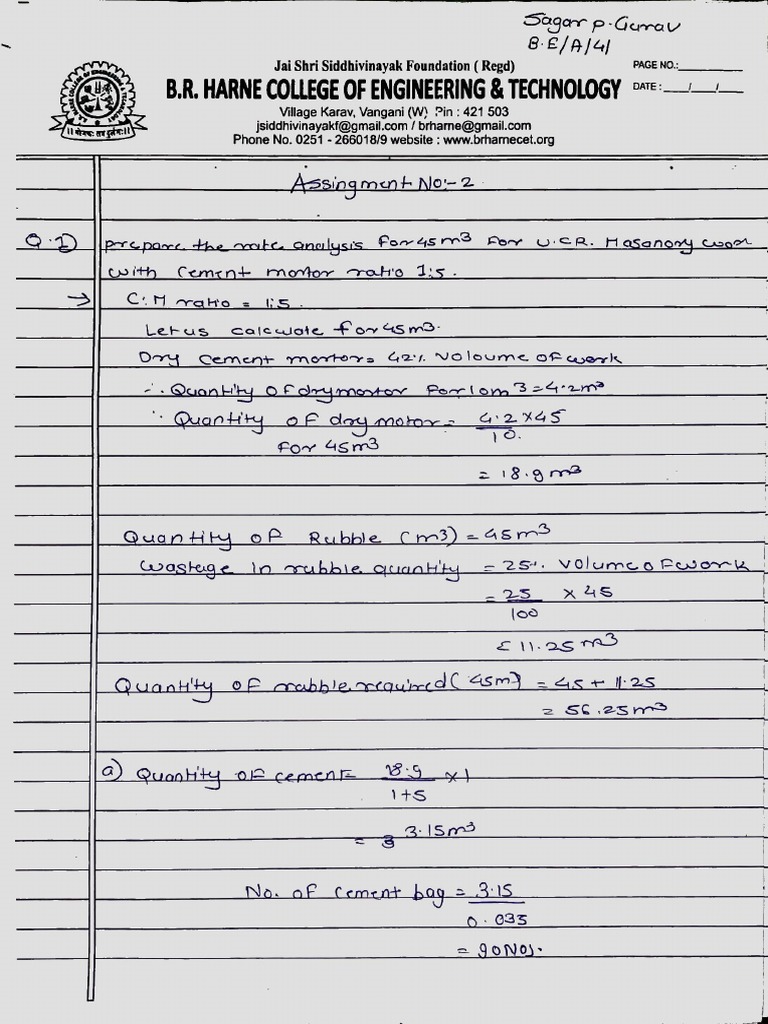 Sagar P. Gurav
B.E/A/41
Jai Shri Siddhivinayak Foundation ( Regd)
B.R. HARNE COLLEGE OF ENGINEERING & TECHNOLOGY
Village Karav, Vangani (W) Pin : 421 503
jsiddhivinayakf@gmail.com / brharne@gmail.com
Phone No. 0251 - 266018/9 website : www.brharnecet.org
PAGE NO.:
DATE : / /
Assingment No:- 2
Q.1) prepare the rate analysis for 45m3 for U.C.R. Masanory work
with cement mortor ratio 1:5.
→ C:M ratio = 1:5.
Let us calculate for 45m3.
Dry cement mortor = 42% Voloume of work
∴ Quantity of dry mortor for 10m3 = 4.2m3
∵ Quantity of dry motor = 4.2 x 45
for 45m3 10.
= 18.9 m3
Quantity of Rubble (m3) = 45m3
Wastage in rubble quantity = 25% Volume of work
= 25 x 45
100
= 11.25 m3
Quantity of rubble required (45m) = 45 + 11.25
= 56.25m3
a) Quantity of cement = 18.9 x 1
1+5
= 3.15m3
No. of cement bag = 3.15
0.035
= 90 Nos.